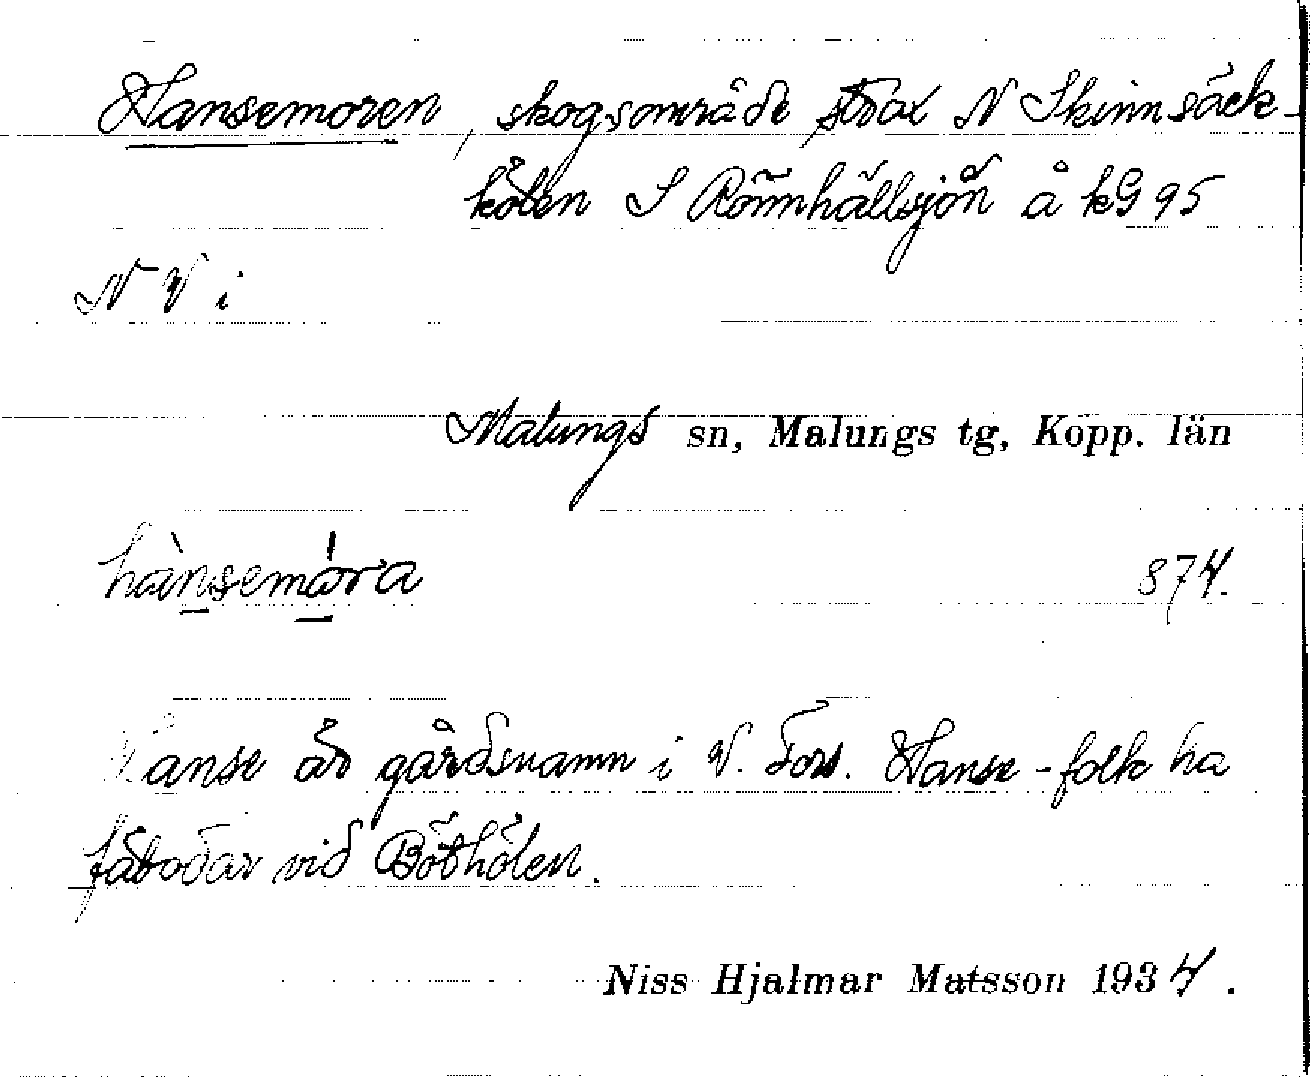 Hansemoren, skogsområde, strax N Skinnsäck-
kölen S Rönnhällsjön å kG 95
N V i
Malungs sn, Malungs tg, Kopp. län
hànsemára 874.
Hanse är gårdsnamn i V. Fors. Hanse-folk ha
fäbodar vid Böthölen.
Niss Hjalmar Matsson 1934.